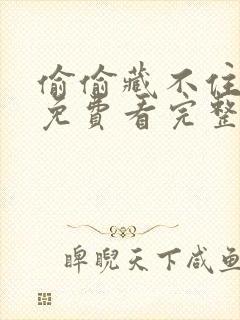 偷偷藏不住
免费看完整
睥睨天下咸鱼